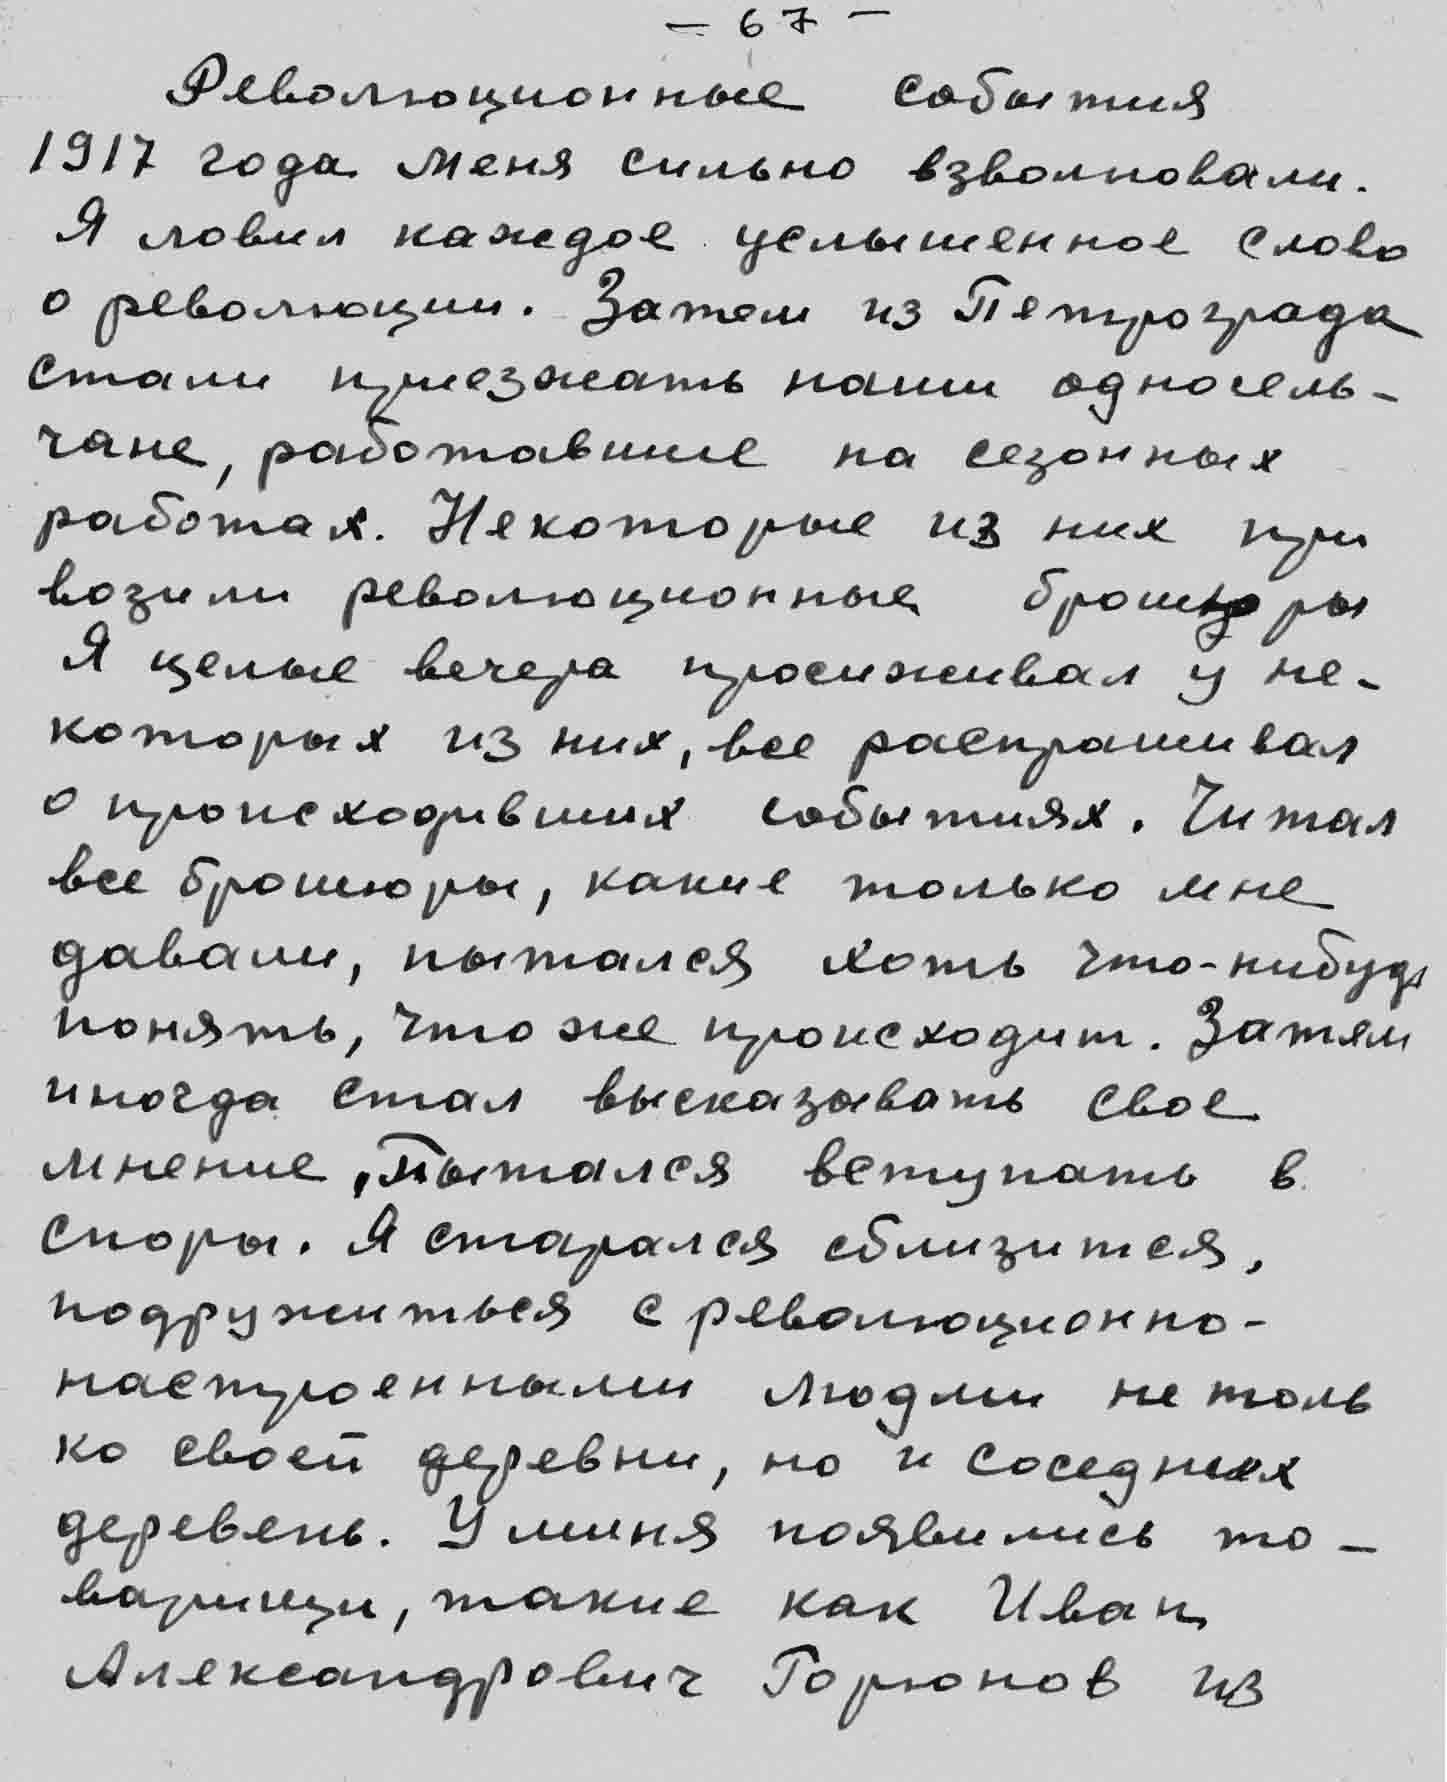 - 67 -
Революционные события
1917 года меня сильно взволновали.
Я ловил каждое услышенное слово
о революции. Затем из Петрограда
стали приезжать наши односель-
чане, работавшие на сезонных
работах. Некоторые из них при
возили революционные брошюры
Я целые вечера просиживал у не-
которых из них, все распрашивал
о происходивших событиях. Читал
все брошюры, какие только мне
давали, пытался хоть что-нибудь
понять, что же происходит. Затем
иногда стал высказывать свое
мнение, пытался вступать в
споры. Я старался сблизится,
подружиться с революционно-
настроенными людми не толь
ко своей деревни, но и соседних
деревень. У миня появились то-
варищи, такие как Иван
Александрович Горюнов из